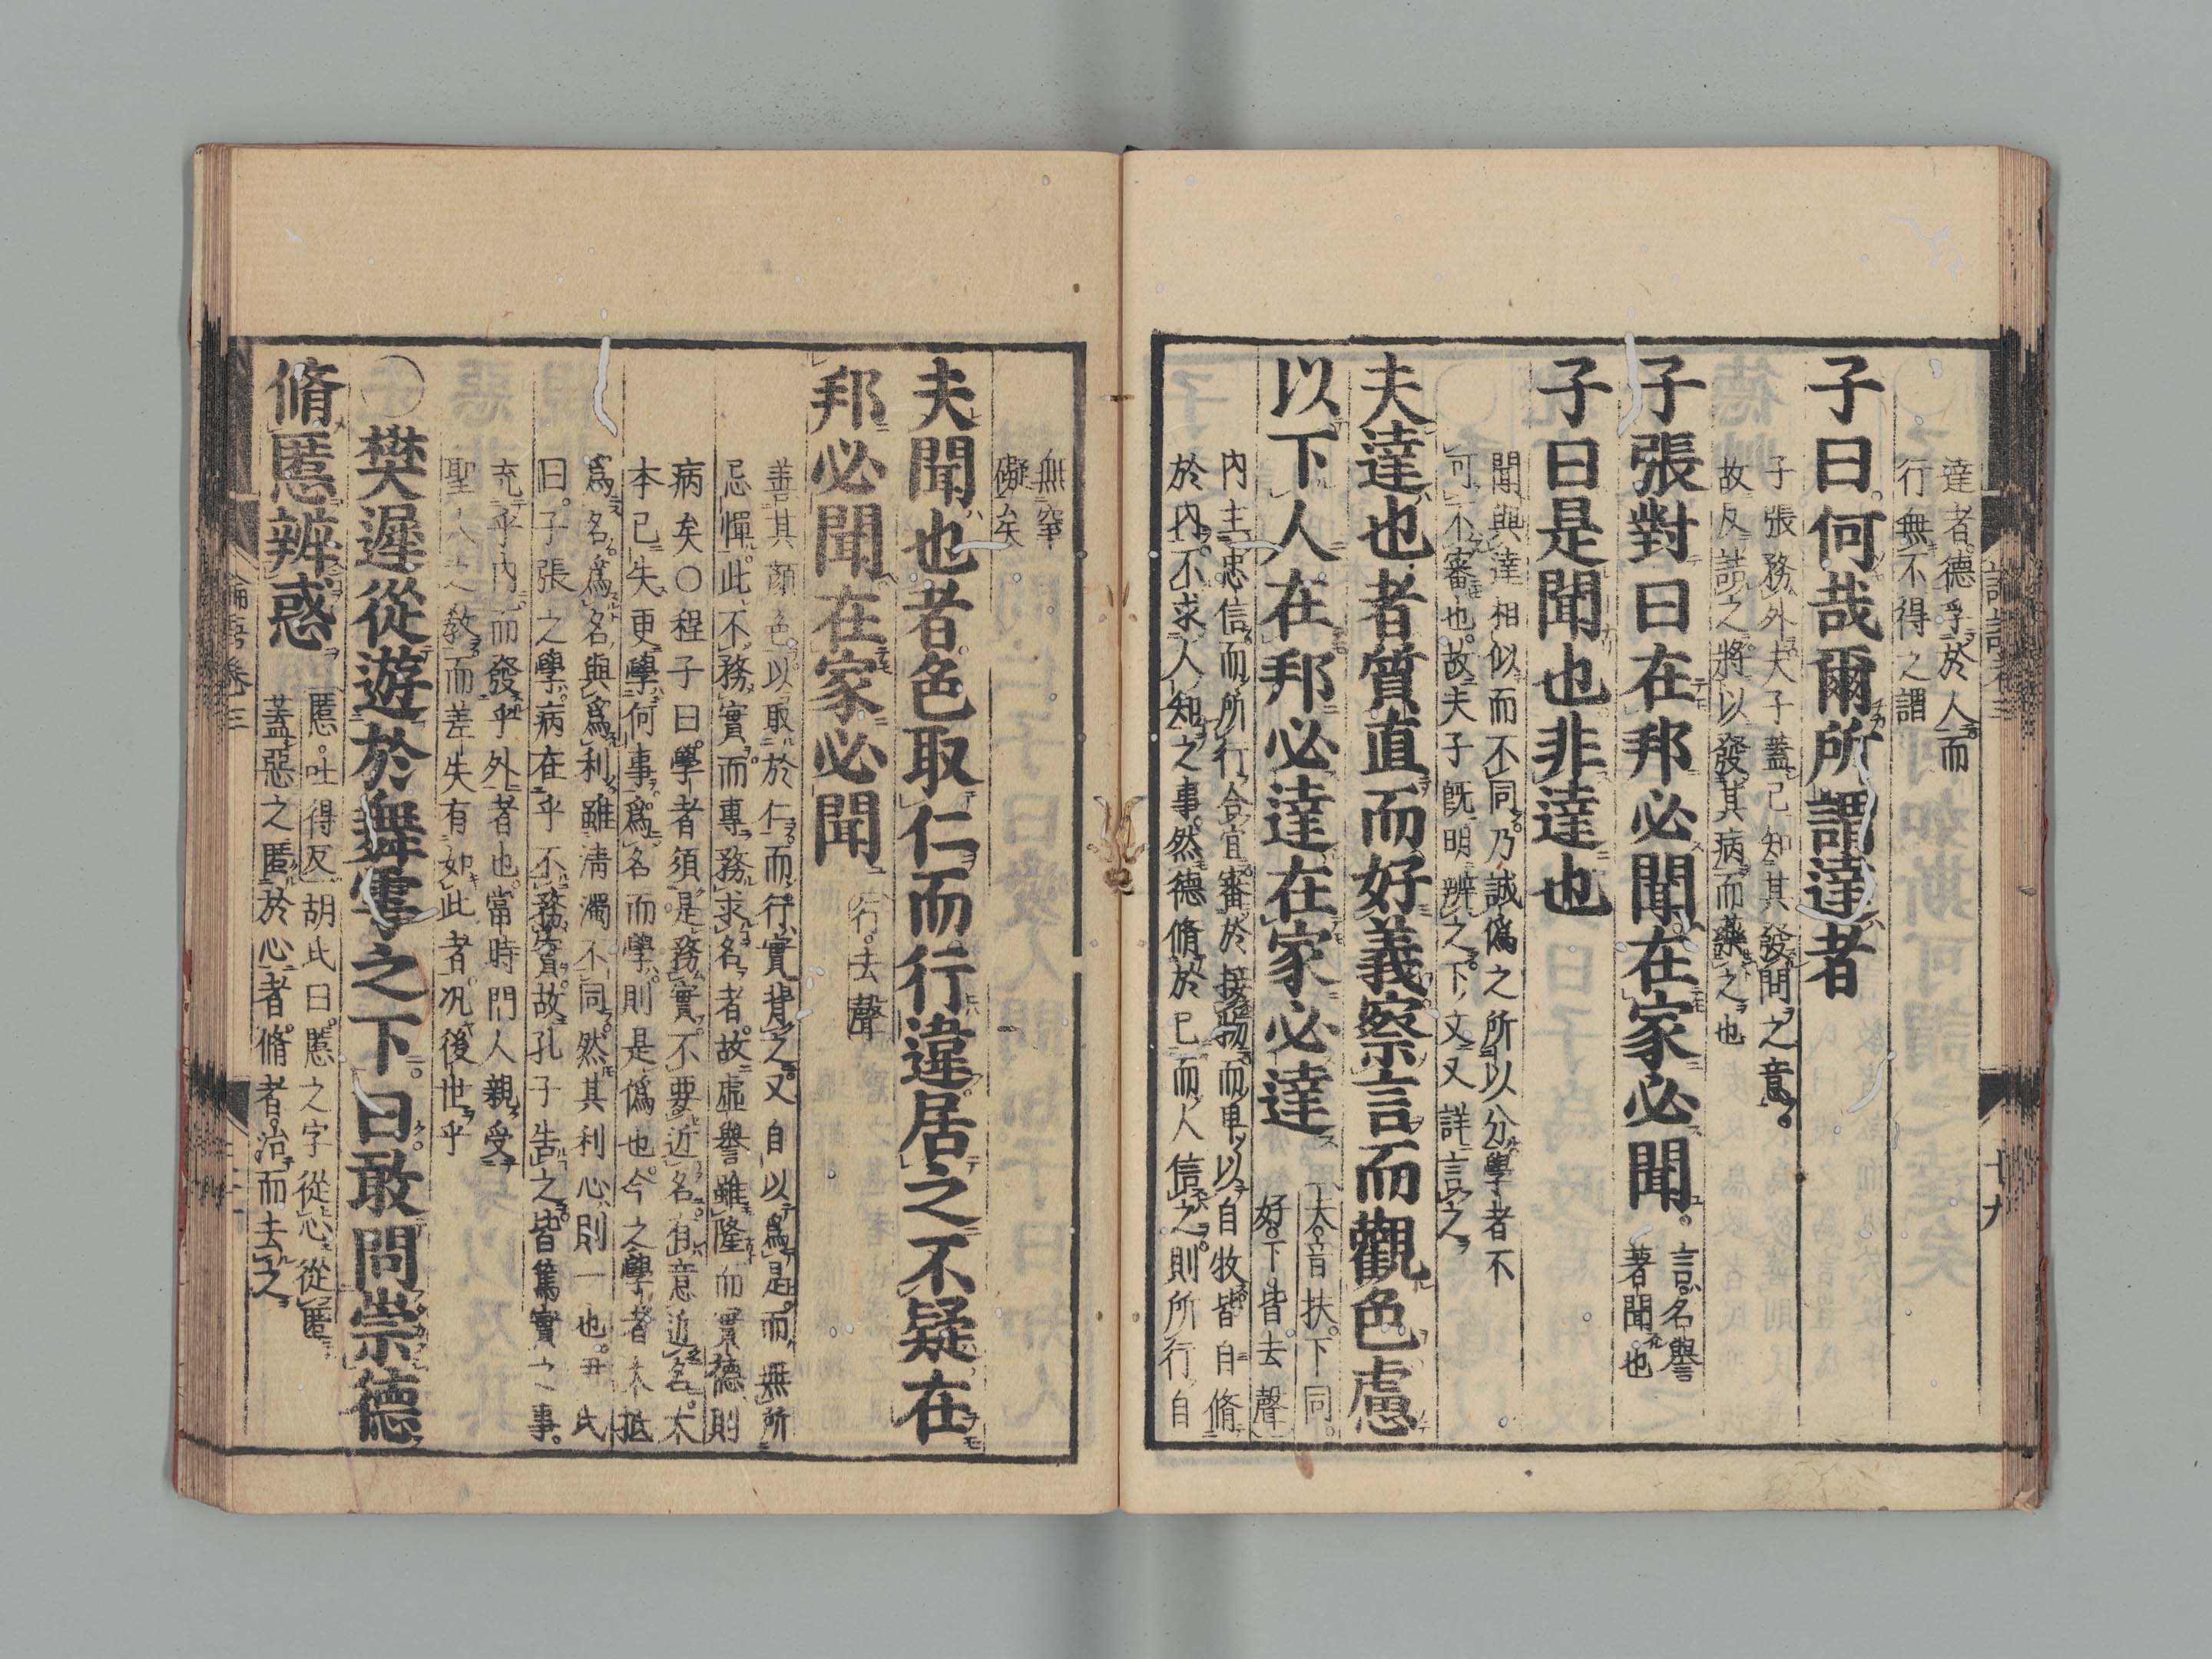 達者德孚於人而
行無不得之謂
子曰何哉爾所謂達者
子張務外夫子蓋已知其發問之意
故反詰之將以發其病而藥之也
子張對曰在邦必聞在家必聞
言名譽
著聞也
子曰是聞也非達也
聞與達相似而不同乃誠偽之所以分學者不
可不審也故夫子既明辨之下文又詳言之
夫達也者質直而好義察言而觀色慮
以下人在邦必達在家必達
夫音扶下同
好下皆去聲
內主忠信而所行合宜審於接物而卑以自牧皆自脩
於內不求人知之事然德脩於己而人信之則所行自
無窒
礙矣
夫聞也者色取仁而行違居之不疑在
邦必聞在家必聞
行去聲
善其顏色以取於仁而行實背之又自以為是而無所
忌憚此不務實而專務求名者故虛譽雖隆而實德則
病矣○程子曰學者須是務實不要近名有意近名大
本已失更學何事為名而學則是偽也今之學者大抵
為名為名與為利雖清濁不同然其利心則一也尹氏
曰子張之學病在乎不務實故孔子告之皆篤實之事
充乎內而發乎外者也當時門人親受
聖人之教而差失有如此者況後世乎
○樊遲從遊於舞雩之下曰敢問崇德
脩慝辨惑
慝吐得反胡氏曰慝之字從心從匿
蓋惡之匿於心者脩者治而去之
論語卷三
十九
論語卷三